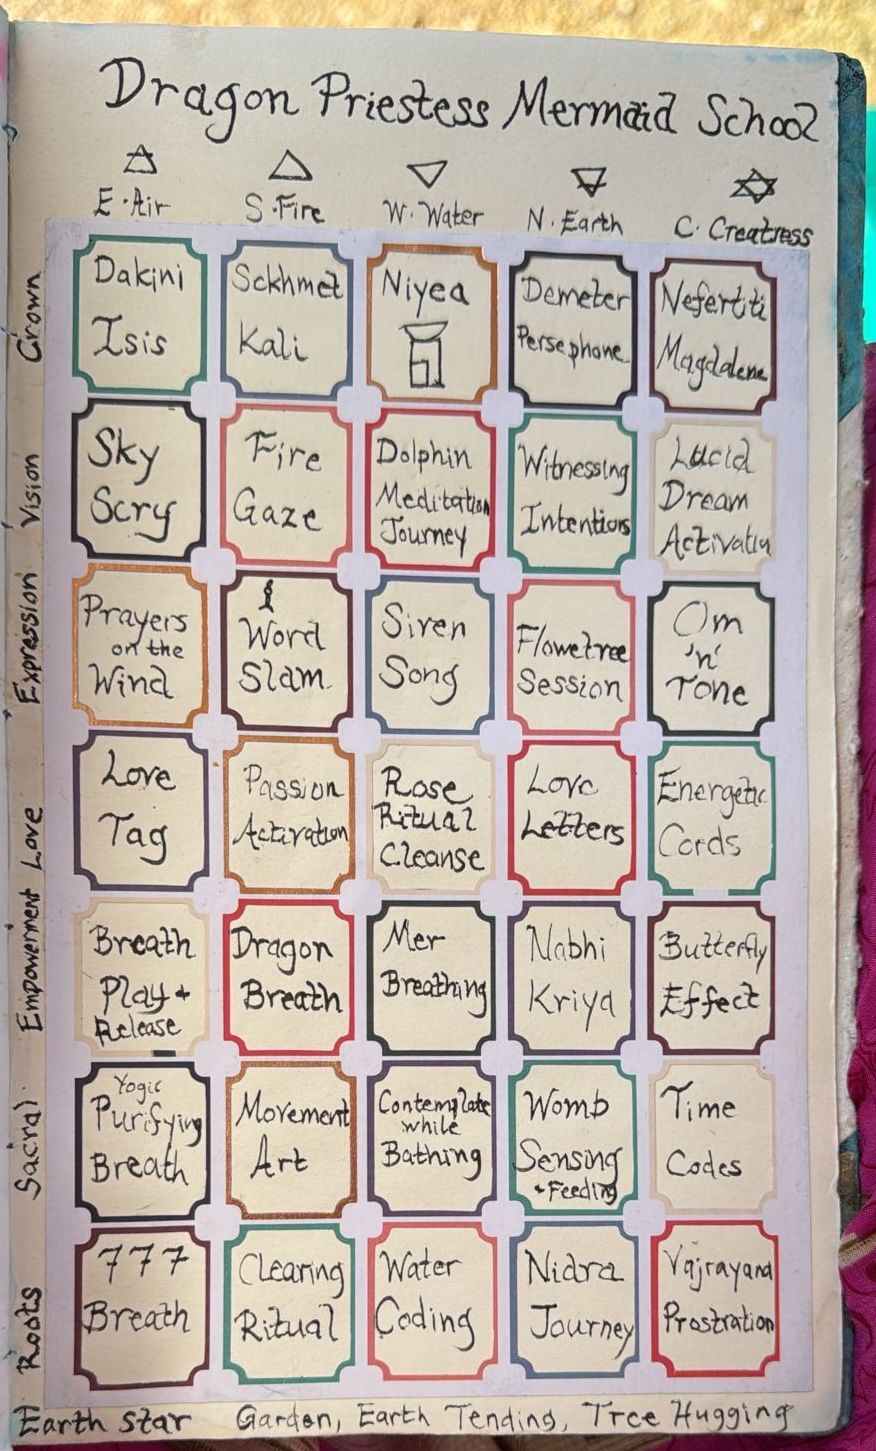 Dragon Priestess Mermaid School
E · Air
S · Fire
W · Water
N · Earth
C · Creatress
Crown
Dakini
Isis
Sekhmet
Kali
Niyea
Demeter
Persephone
Nefertiti
Magdalene
Vision
Sky
Scry
Fire
Gaze
Dolphin
Meditation
Journey
Witnessing
Intentions
Lucid
Dream
Activatin
Expression
Prayers
on the
Wind
Word
Slam
Siren
Song
Flowetree
Session
Om
'n'
Tone
Love
Love
Tag
Passion
Activation
Rose
Ritual
Cleanse
Love
Letters
Energetic
Cords
Empowerment
Breath
Play +
Release
Dragon
Breath
Mer
Breathing
Nabhi
Kriya
Butterfly
Effect
Sacral
Yogic
Purifying
Breath
Movement
Art
Contemplate
while
Bathing
Womb
Sensing
+ Feeding
Time
Codes
Roots
777
Breath
Clearing
Ritual
Water
Coding
Nidra
Journey
Vajrayana
Prostration
Earth Star Garden, Earth Tending, Tree Hugging